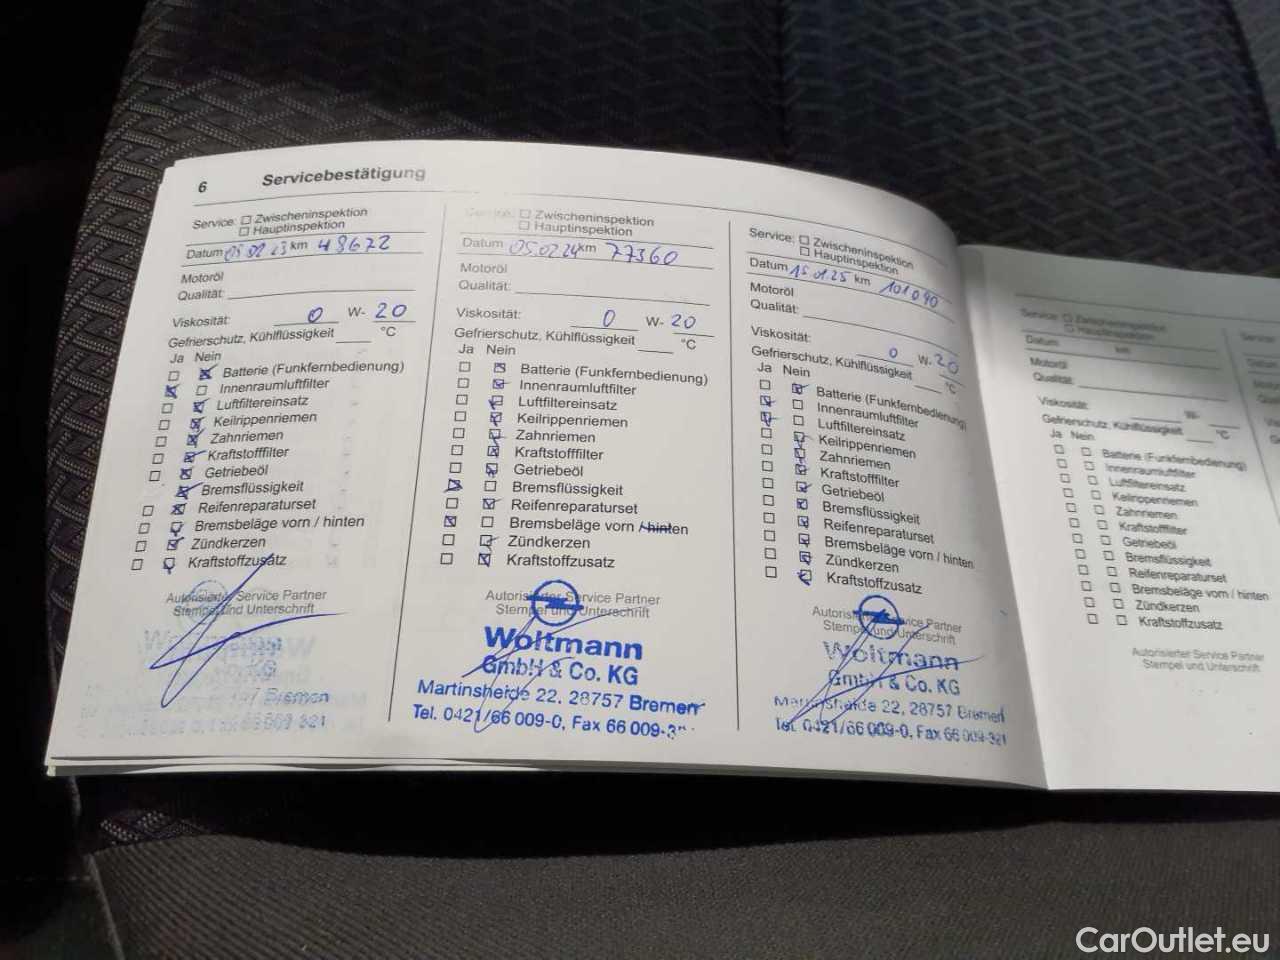 6 Servicebestätigung
Service: Zwischeninspektion
Hauptinspektion
Datum 05.02.23 km 48672
Motoröl
Qualität:
Viskosität: 0 W- 20
Gefrierschutz, Kühlflüssigkeit °C
Ja Nein
Batterie (Funkfernbedienung)
Innenraumluftfilter
Luftfiltereinsatz
Keilrippenriemen
Zahnriemen
Kraftstofffilter
Getriebeöl
Bremsflüssigkeit
Reifenreparaturset
Bremsbeläge vorn / hinten
Zündkerzen
Kraftstoffzusatz
Autorisierter Service Partner
Stempel und Unterschrift
KG
Bremen
Service: Zwischeninspektion
Hauptinspektion
Datum 05.02.24 km 77360
Motoröl
Qualität:
Viskosität: 0 W- 20
Gefrierschutz, Kühlflüssigkeit °C
Ja Nein
Batterie (Funkfernbedienung)
Innenraumluftfilter
Luftfiltereinsatz
Keilrippenriemen
Zahnriemen
Kraftstofffilter
Getriebeöl
Bremsflüssigkeit
Reifenreparaturset
Bremsbeläge vorn / hinten
Zündkerzen
Kraftstoffzusatz
Autorisierter Service Partner
Stempel und Unterschrift
Woltmann
GmbH & Co. KG
Martinsheide 22, 28757 Bremen
Tel. 0421/66 009-0, Fax 66 009-3
Service: Zwischeninspektion
Hauptinspektion
Datum 15.01.25 km 101090
Motoröl
Qualität:
Viskosität: 0 W- 20
Gefrierschutz, Kühlflüssigkeit °C
Ja Nein
Batterie (Funkfernbedienung)
Innenraumluftfilter
Luftfiltereinsatz
Keilrippenriemen
Zahnriemen
Kraftstofffilter
Getriebeöl
Bremsflüssigkeit
Reifenreparaturset
Bremsbeläge vorn / hinten
Zündkerzen
Kraftstoffzusatz
Autorisierter Service Partner
Stempel und Unterschrift
Woltmann
GmbH & Co. KG
Martinsheide 22, 28757 Bremen
Tel. 0421/66 009-0, Fax 66 009-321
Service: Zwischeninspektion
Hauptinspektion
Datum km
Motoröl
Qualität:
Viskosität: W-
Gefrierschutz, Kühlflüssigkeit °C
Ja Nein
Batterie (Funkfernbedienung)
Innenraumluftfilter
Luftfiltereinsatz
Keilrippenriemen
Zahnriemen
Kraftstofffilter
Getriebeöl
Bremsflüssigkeit
Reifenreparaturset
Bremsbeläge vorn / hinten
Zündkerzen
Kraftstoffzusatz
Autorisierter Service Partner
Stempel und Unterschrift
CarOutlet.eu